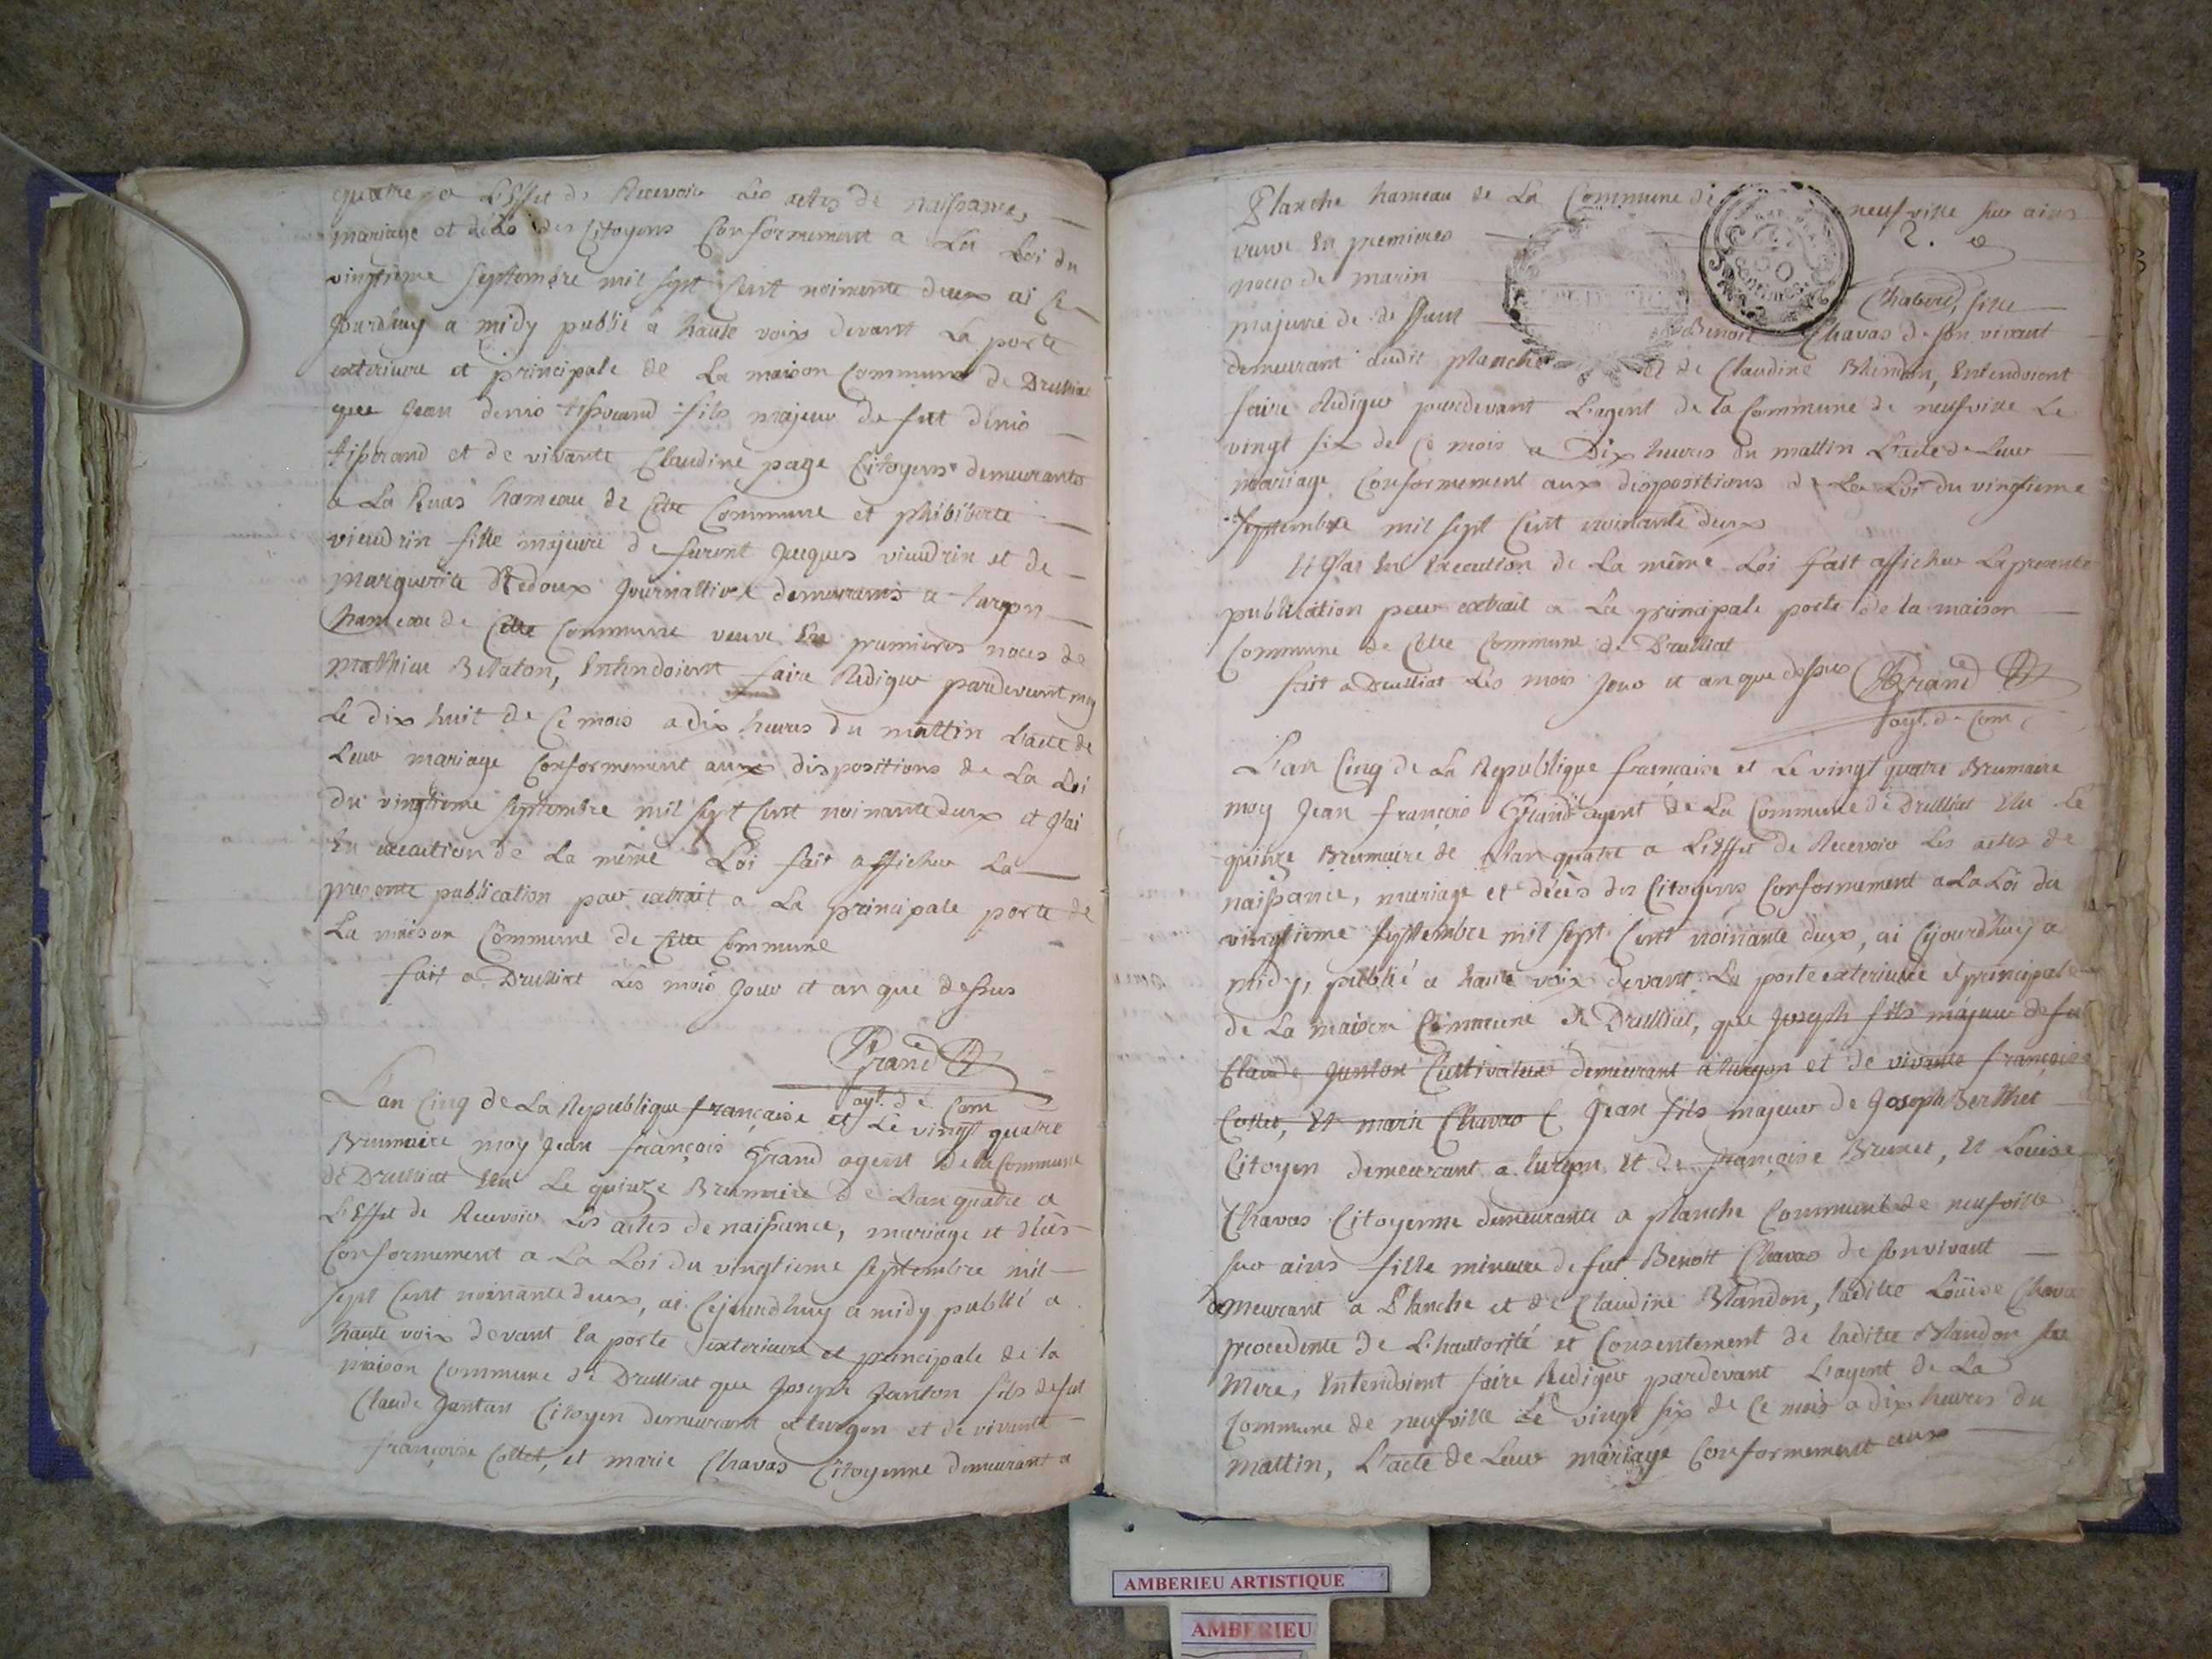 quatre a L'Effet de Recevoir Les actes de naissance,
mariage et décès des Citoyens Conformement a La Loi du
vingtieme Septembre mil sept Cent noinante deux ai Ce
Jourdhuy a midy publié a haute voix devant La porte
exterieure et principale de La maison Commune de Druilliat
que Jean denis tisserand fils majeur de fut denis
tisserand et de vivante Claudine page Citoyens demeurants
a La Ruas hameau de Cette Commune et philiberte
vieudrin fille majeure de furent Jacques vieudrin et de
marguerite Redoux Journalliere demeurants a turgon
hameau de Cette Commune veuve En premieres noces de
mathieu Billaton, Entendoient faire Rediger pardevant moy
Le dix huit de Ce mois a dix heures du mattin L'acte de
Leur mariage Conformement aux dispositions de La Loi
du vingtieme Septembre mil sept Cent noinante deux et J'ai
En execution de La même Loi fait afficher La
presente publication par extrait a La principale porte de
La maison Commune de Cette Commune
fait a Druilliat Les mois Jour et an que dessus
Grand
agt. de Com
L'an Cinq de La Republique française et Le vingt quatre
Brumaire moy Jean françois Grand agent de la Commune
de Druilliat Elu Le quinze Brumaire de L'an quatre a
L'Effet de Recevoir Les actes de naissance, mariage et décès
Conformement a La Loi du vingtieme Septembre mil
sept Cent noinante deux, ai Cejourdhuy a midy publié a
haute voix devant la porte exterieure et principale de la
maison Commune de Druilliat que Joseph Janton fils de fut
Claude Jantan Citoyen demeurant a turgon et de vivante
françoise Collet, et marie Chavas Citoyenne demeurant a
Planche hameau de La Commune de neufville sur ains
2. e
veuve En premieres
noces de marin Chabord, fille
majeure de deffunt Benoit Chavas de son vivant
demeurant audit planche et de Claudine Blandon, Entendoient
faire Rediger pardevant L'agent de la Commune de neufville Le
vingt six de Ce mois a Dix heures du mattin L'acte de Leur
mariage Conformement aux dispositions de La Loi du vingtieme
Septembre mil sept Cent noinante deux
Et J'ai En Execution de La même Loi fait afficher La presente
publication par extrait a La principale porte de la maison
Commune de Cette Commune de Druilliat
fait a Druilliat Les mois Jour et an que dessus Grand
agt. de Com
L'an Cinq de La Republique française et Le vingt quatre Brumaire
moy Jean françois Grand agent de La Commune de Druilliat Elu Le
quinze Brumaire de L'an quatre a L'Effet de Recevoir Les actes de
naissance, mariage et décès des Citoyens Conformement a La Loi du
vingtieme Septembre mil sept Cent noinante deux, ai Cejourdhuy a
midy, publié a haute voix devant La porte exterieure et principale
de La maison Commune de Druilliat, que Joseph fils majeur de fu
Claude Janton Cultivateur demeurant a turgon et de vivante françoise
Collet, Et marie Chavas C Jean fils majeur de Joseph Berthet
Citoyen demeurant a turgon, Et de françoise Brunet, Et Louise
Chavas Citoyenne demeurante a planche Commune de neufville
sur ains fille mineure de fut Benoit Chavas de son vivant
demeurant a Planche et de Claudine Blandon, ladite Loüise Chava
procedente de L'hautorité et Consentement de ladite Blandon sa
mere, Entendoient faire Rediger pardevant L'agent de La
Commune de neufville Le vingt six de Ce mois a dix heures du
mattin, L'acte de Leur mariage Conformement aux
AMBERIEU ARTISTIQUE
AMBERIEU